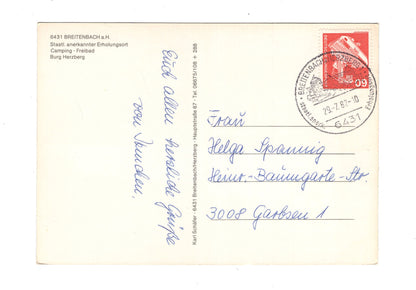 6431 BREITENBACH a.H.
Staatl. anerkannter Erholungsort
Camping - Freibad
Burg Herzberg
Euch allen herzliche Grüße
von
Karl Schäfer · 6431 Breitenbach/Herzberg · Hauptstraße 67 · Tel. 06675/108 + 288
60
BREITENBACH
29.-7.87-10
6431
Frau
Helga Spannig
Heinr.-Baumgarte-Str.
3008 Garbsen 1